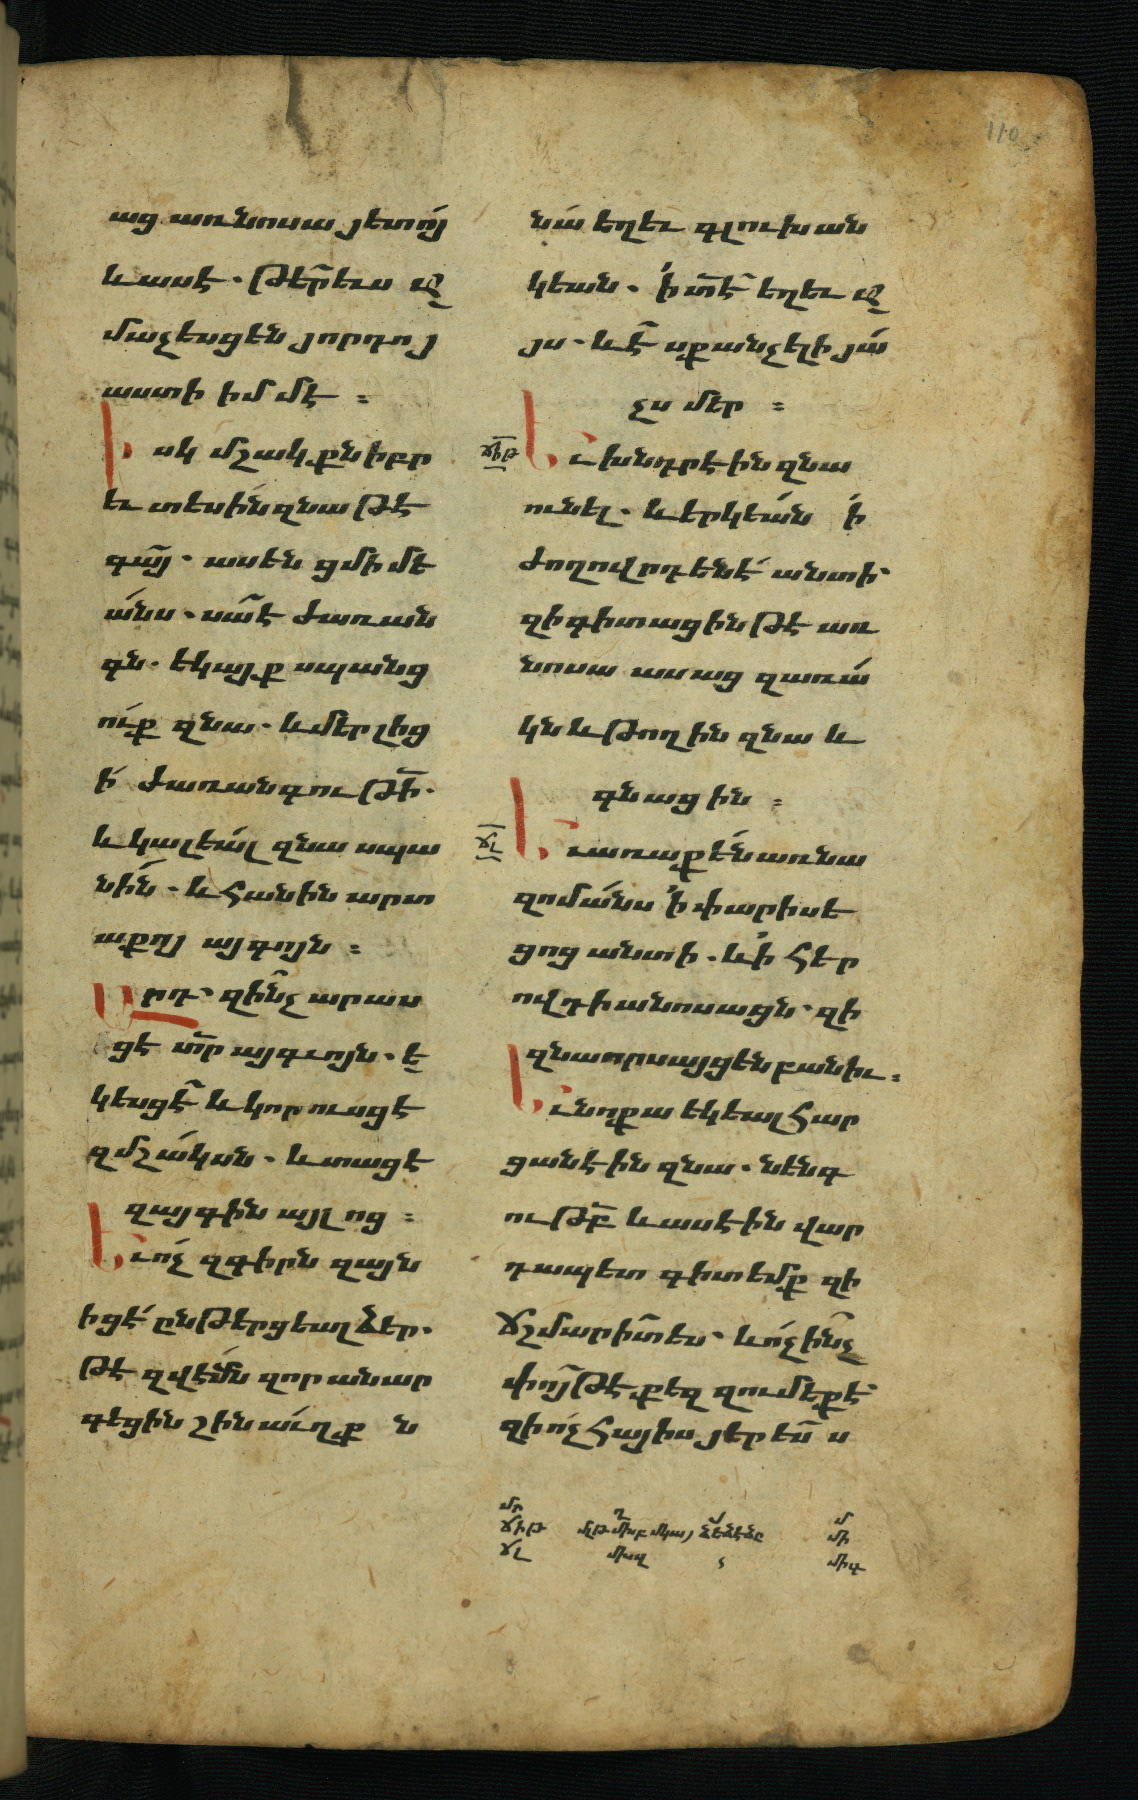 110
աց առ նոսա յետոյ
և ասէ. թէր̃ ևս ը
մաչեսցեն յորդւոյ
աստի իմմէ :
Իսկ մշակքն իբր
եւ տեսին զնա թէ
գա̃յ. ասեն ցմիմե
անս. սա̃ է ժառան
գն. եկայք սպանց
ուք զնա. և մեր լիցի
ի ժառանգութի̃.
և կալեալ զնա սպա
նին. և հանին արտ
աքոյ այգոյն :
Արդ. զի̃նչ արաս
ցէ տր̃ այգւոյն. ե
կեսցէ̃ և կորուսցէ
զմշակսն. և տացէ
զայգին այլոց :
Եւ ոչ զգիրն զայն
իցէ ընթերցեալ ձեր.
թէ զվէմն զոր անար
գեցին շինաւղք ն
նա եղեւ գլուխ ան
կեան. ի տէ̃ եղեւ ը
յս. և է̃ սքանչելի յա
չս մեր :
ՃԻԹ
Եւ խնդրէին զնա
ունել. և երկեան ի
ժողովրդենէ անտի
զի գիտացին թէ առ
նոսա ասաց զառա
կն և թողին զնա և
գնացին :
ՃԼ
Եւ առաքեն առ նա
զոմանս ի փարիսե
ցոց անտի. և ի հեր
ովդիանոսացն. զի
զնա որսայցեն բանիւ :
Եւ նոքա եկեալ հար
ցանէին զնա. նենգ
ութբ̃ և ասէին վար
դապետ գիտեմք զի
ճշմարի̃տ ես. և ոչ ի̃նչ
փո̃յթ է քեզ զումեքէ
զի ոչ հայիս յերես̃ ս
մր
ՃԻԹ
ՃԼ